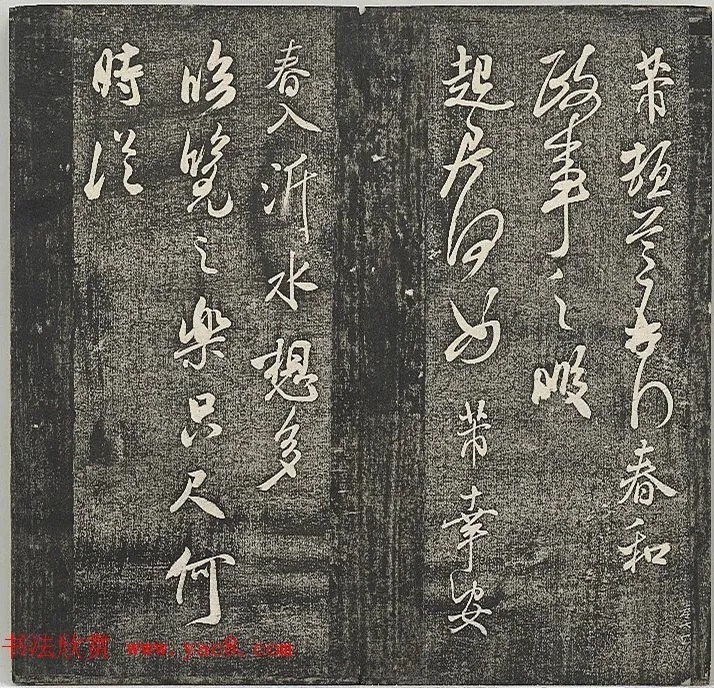 芾頓首春和
政事之暇
起居何如芾幸安
春入沂水想多
臨覽之樂只尺何
時從
书法欣赏 www.yac8.com